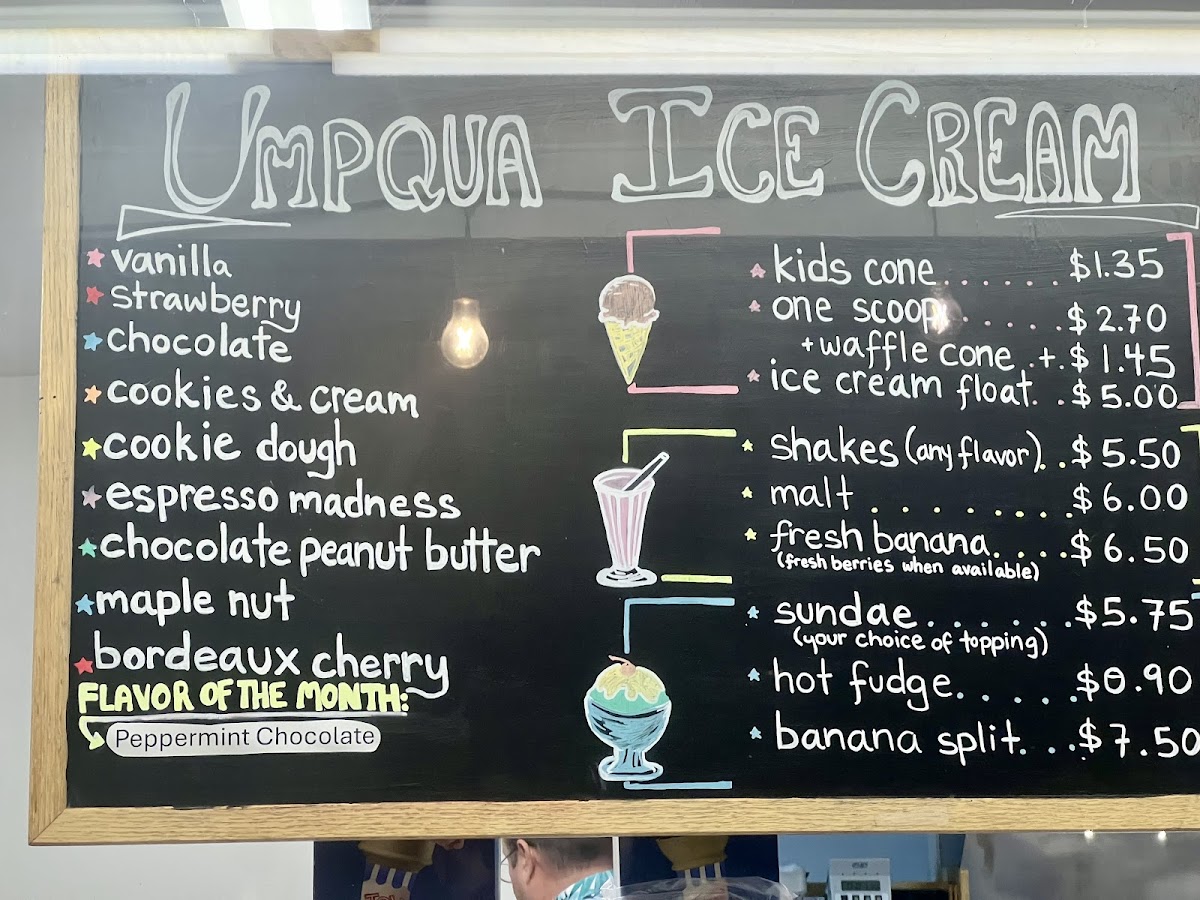 UMPQUA ICE CREAM
vanilla
strawberry
chocolate
cookies & cream
cookie dough
espresso madness
chocolate peanut butter
maple nut
bordeaux cherry
FLAVOR OF THE MONTH:
Peppermint Chocolate
kids cone...... $1.35
one scoop...... $2.70
+waffle cone .+. $1.45
ice cream float. . $5.00
shakes (any flavor). . $5.50
malt . . . . . . . . $6.00
fresh banana. . . . $6.50
(fresh berries when available)
sundae . . . . . . . $5.75
(your choice of topping)
hot fudge. . . . . $0.90
banana split. . . $7.50